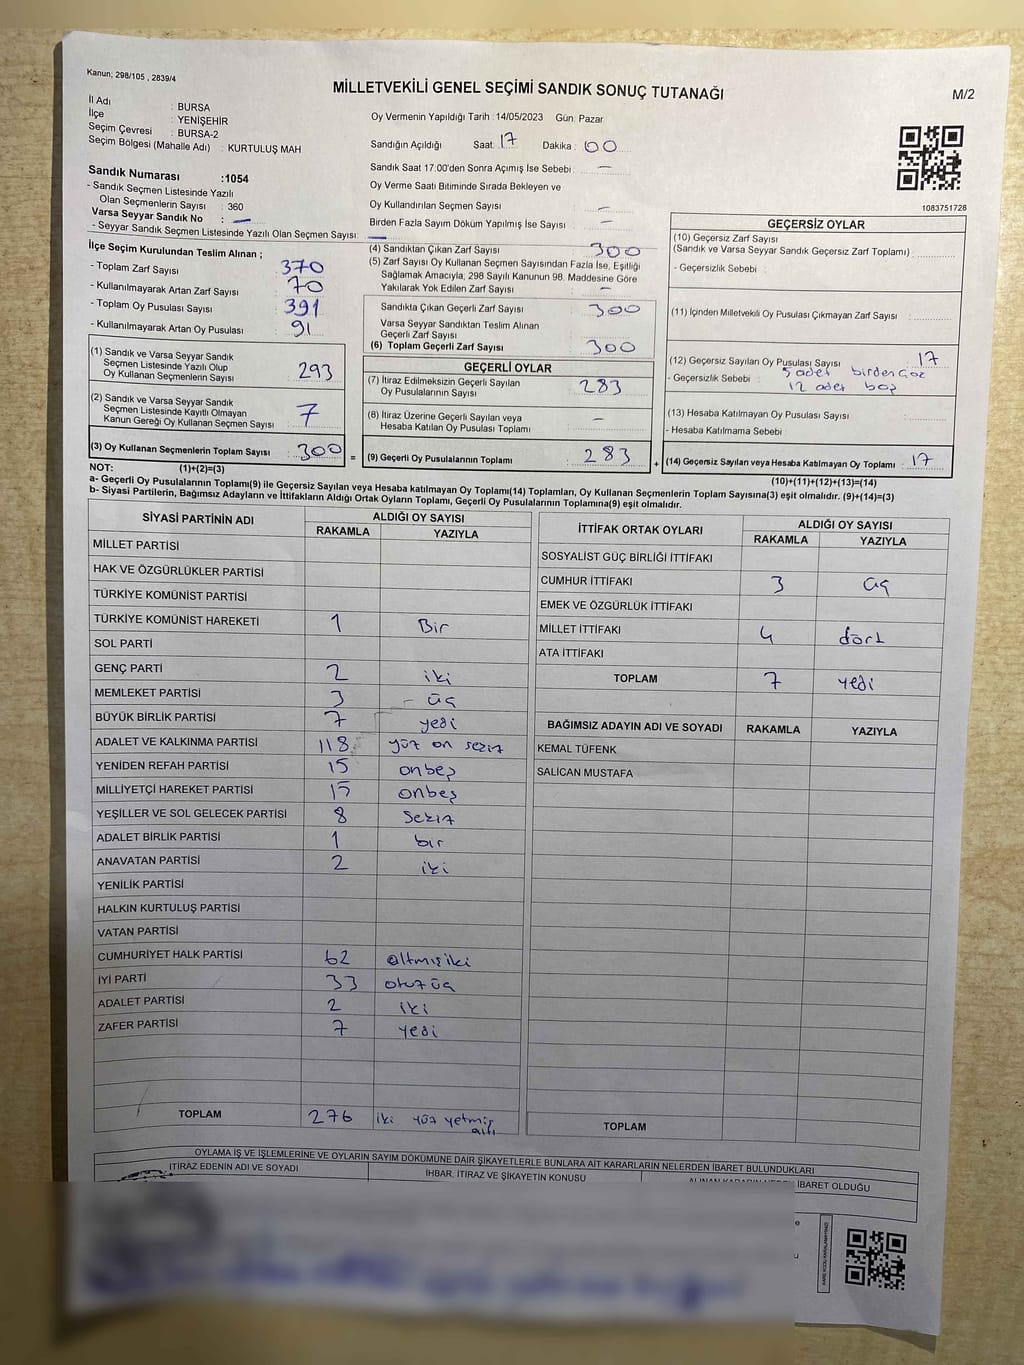 Kanun; 298/105 , 2839/4
MİLLETVEKİLİ GENEL SEÇİMİ SANDIK SONUÇ TUTANAĞI
M/2
İl Adı : BURSA
İlçe : YENİŞEHİR
Seçim Çevresi : BURSA-2
Seçim Bölgesi (Mahalle Adı) : KURTULUŞ MAH
Oy Vermenin Yapıldığı Tarih : 14/05/2023 Gün: Pazar
Sandığın Açıldığı Saat: 17 Dakika : 00
Sandık Saat 17.00'den Sonra Açımış İse Sebebi : —
Oy Verme Saati Bitiminde Sırada Bekleyen ve
Oy Kullandırılan Seçmen Sayısı : —
Birden Fazla Sayım Döküm Yapılmış İse Sayısı : —
1083751728
Sandık Numarası :1054
- Sandık Seçmen Listesinde Yazılı
Olan Seçmenlerin Sayısı : 360
Varsa Seyyar Sandık No : —
- Seyyar Sandık Seçmen Listesinde Yazılı Olan Seçmen Sayısı: —
İlçe Seçim Kurulundan Teslim Alınan ;
- Toplam Zarf Sayısı : 370
- Kullanılmayarak Artan Zarf Sayısı : 70
- Toplam Oy Pusulası Sayısı : 391
- Kullanılmayarak Artan Oy Pusulası : 91
(1) Sandık ve Varsa Seyyar Sandık
Seçmen Listesinde Yazılı Olup
Oy Kullanan Seçmenlerin Sayısı : 293
(2) Sandık ve Varsa Seyyar Sandık
Seçmen Listesinde Kayıtlı Olmayan
Kanun Gereği Oy Kullanan Seçmen Sayısı : 7
(3) Oy Kullanan Seçmenlerin Toplam Sayısı : 300
(4) Sandıktan Çıkan Zarf Sayısı : 300
(5) Zarf Sayısı Oy Kullanan Seçmen Sayısından Fazla İse, Eşitliği
Sağlamak Amacıyla, 298 Sayılı Kanunun 98. Maddesine Göre
Yakılarak Yok Edilen Zarf Sayısı : —
Sandıkta Çıkan Geçerli Zarf Sayısı : 300
Varsa Seyyar Sandıktan Teslim Alınan
Geçerli Zarf Sayısı :
(6) Toplam Geçerli Zarf Sayısı : 300
GEÇERLİ OYLAR
(7) İtiraz Edilmeksizin Geçerli Sayılan
Oy Pusulasının Sayısı : 283
(8) İtiraz Üzerine Geçerli Sayılan veya
Hesaba Katılan Oy Pusulası Toplamı : —
= (9) Geçerli Oy Pusulalarının Toplamı : 283
GEÇERSİZ OYLAR
(10) Geçersiz Zarf Sayısı
(Sandık ve Varsa Seyyar Sandık Geçersiz Zarf Toplamı) :
- Geçersizlik Sebebi :
(11) İçinden Milletvekili Oy Pusulası Çıkmayan Zarf Sayısı :
(12) Geçersiz Sayılan Oy Pusulası Sayısı : 17
- Geçersizlik Sebebi : 5 adet birden çok
12 adet boş
(13) Hesaba Katılmayan Oy Pusulası Sayısı :
- Hesaba Katılmama Sebebi :
+ (14) Geçersiz Sayılan veya Hesaba Katılmayan Oy Toplamı : 17
NOT: (1)+(2)=(3)
(10)+(11)+(12)+(13)=(14)
a- Geçerli Oy Pusulalarının Toplamı(9) ile Geçersiz Sayılan veya Hesaba katılmayan Oy Toplamı(14) Toplamları, Oy Kullanan Seçmenlerin Toplam Sayısına(3) eşit olmalıdır. (9)+(14)=(3)
b- Siyasi Partilerin, Bağımsız Adayların ve İttifakların Aldığı Ortak Oyların Toplamı, Geçerli Oy Pusulalarının Toplamına(9) eşit olmalıdır.
SİYASİ PARTİNİN ADI ALDIĞI OY SAYISI
RAKAMLA YAZIYLA
MİLLET PARTİSİ
HAK VE ÖZGÜRLÜKLER PARTİSİ
TÜRKİYE KOMÜNİST PARTİSİ
TÜRKİYE KOMÜNİST HAREKETİ 1 Bir
SOL PARTİ
GENÇ PARTİ 2 iki
MEMLEKET PARTİSİ 3 üç
BÜYÜK BİRLİK PARTİSİ 7 yedi
ADALET VE KALKINMA PARTİSİ 118 yüz on sekiz
YENİDEN REFAH PARTİSİ 15 onbeş
MİLLİYETÇİ HAREKET PARTİSİ 15 onbeş
YEŞİLLER VE SOL GELECEK PARTİSİ 8 sekiz
ADALET BİRLİK PARTİSİ 1 bir
ANAVATAN PARTİSİ 2 iki
YENİLİK PARTİSİ
HALKIN KURTULUŞ PARTİSİ
VATAN PARTİSİ
CUMHURİYET HALK PARTİSİ 62 altmışiki
İYİ PARTİ 33 otuzüç
ADALET PARTİSİ 2 iki
ZAFER PARTİSİ 7 yedi
TOPLAM 276 iki yüz yetmiş
altı
İTTİFAK ORTAK OYLARI ALDIĞI OY SAYISI
RAKAMLA YAZIYLA
SOSYALİST GÜÇ BİRLİĞİ İTTİFAKI
CUMHUR İTTİFAKI 3 üç
EMEK VE ÖZGÜRLÜK İTTİFAKI
MİLLET İTTİFAKI 4 dört
ATA İTTİFAKI
TOPLAM 7 yedi
BAĞIMSIZ ADAYIN ADI VE SOYADI RAKAMLA YAZIYLA
KEMAL TÜFENK
SALİCAN MUSTAFA
TOPLAM
OYLAMA İŞ VE İŞLEMLERİNE VE OYLARIN SAYIM DÖKÜMÜNE DAİR ŞİKAYETLERLE BUNLARA AİT KARARLARIN NELERDEN İBARET BULUNDUKLARI
İTİRAZ EDENİN ADI VE SOYADI
İHBAR, İTİRAZ VE ŞİKAYETİN KONUSU
İBARET OLDUĞU